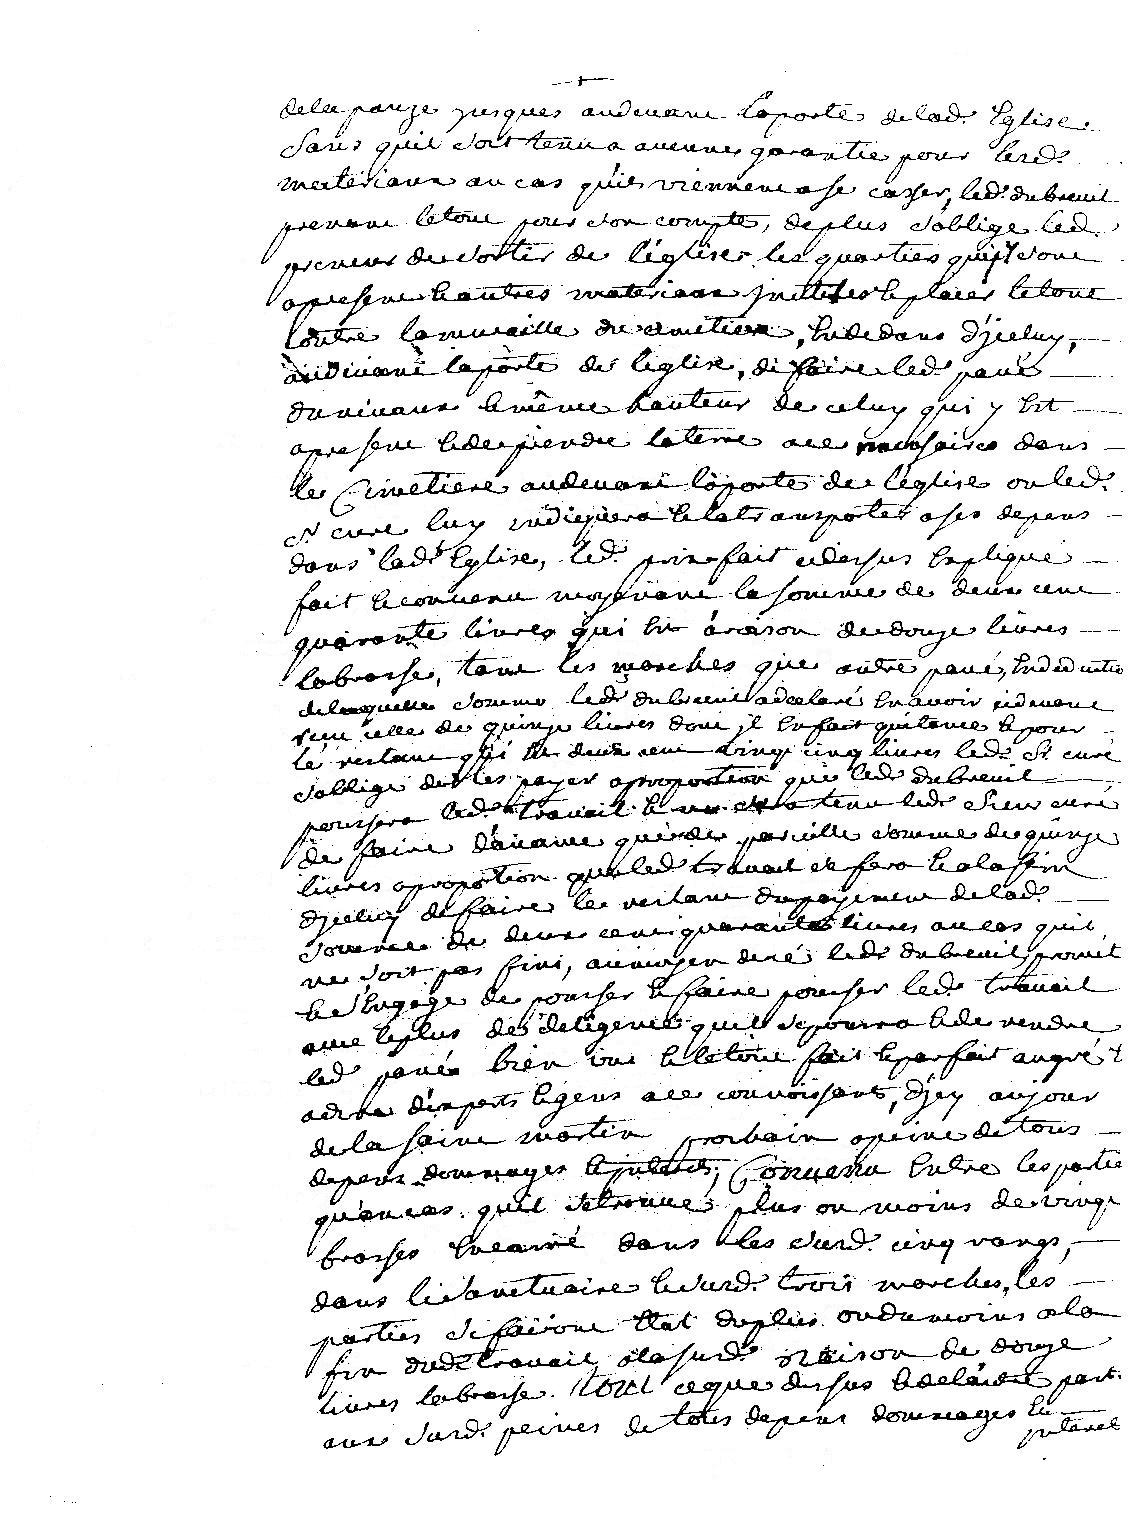 dela pauze jusques audevant laporte delad. Eglise
Sans quil soit tenu a aucune garantie pour lesd.
materiaux au cas quils viennent a se casser, led. dubreuil
prenant letout pour son compte, deplus soblige led.
preneur de sortir de léglise les quartiers quy sont
apresent & autres materiaux jnutiles & placer letout
contre lamuraille du cimetiere, Endedans d'jceluy,
audevant laporte de leglise, de faire led. pavé
duniveaux & même hauteur de celuy qui y Est
apresent & de prendre laterre ace necessaire dans
le Cimetiere audevant laporte de léglise ou led.
Sr. curé luy indiquera & la transporter a ses depens
dans lad. Eglise, led. prixfait cidessus Expliqué
fait & convenu moyenant la somme de deux cent
quarante livres qui Est araison de douze livres
labrasse, tant les marches que autre pavé, En deduction
delaquelle somme led. dubreuil adeclaré En avoir cidevant
reçu celle de quinze livres dont jl En fait quitance & pour
le restant qui Est deux cent vingt cinq livres led. Sr. curé
soblige de les payer aproportion que led. dubreuil
poussera led. travail & tenu led. Sieur curé
de faire d'avance que de pareille somme de quinze
livres aproportion queled. travail se fera & ala fin
djceluy de faire le restant du payement de lad.
somme de deux cent quarante livres au cas quil
ne soit pas fini, aumoyen dece led. dubreuil promet
& s'Engage de pousser & faire pousser led. travail
avec leplus de deligence quil sepourra & de rendre
led. pavé bien uni & letout fait & parfait augré &
adire d'Experts & gens ace connoissants, d'jcy aujour
de la saint martin prochain apeine de tous
depens dommages & jnterets, Convenu Entre les parties
qu'en cas quil setrouve plus ou moins de vingt
brasses En carré dans les susd. cinq rangs,
dans le sanctuaire & susd. trois marches, les
parties se fairont Etat du plus ou du moins ala
fin dud. travail alasusd. raison de douze
livres labrasse. Tout ceque dessus & part.
aux susd. peines de tous depens dommages &
jnterets